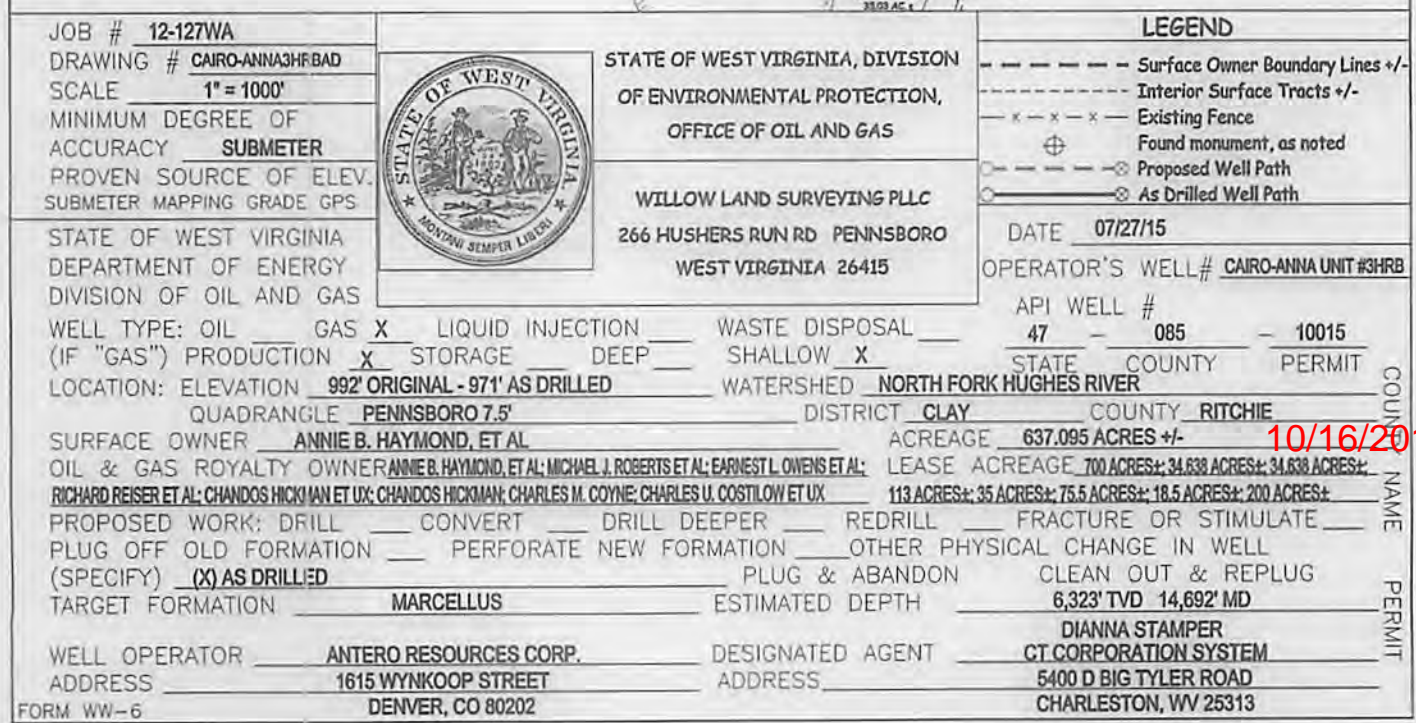 33.03 AC.±
JOB # 12-127WA
DRAWING # CAIRO-ANNA3HRBAD
SCALE 1" = 1000'
MINIMUM DEGREE OF
ACCURACY SUBMETER
PROVEN SOURCE OF ELEV.
SUBMETER MAPPING GRADE GPS
STATE OF WEST VIRGINIA
MONTANI SEMPER LIBERI
STATE OF WEST VIRGINIA, DIVISION
OF ENVIRONMENTAL PROTECTION,
OFFICE OF OIL AND GAS
WILLOW LAND SURVEYING PLLC
266 HUSHERS RUN RD PENNSBORO
WEST VIRGINIA 26415
LEGEND
Surface Owner Boundary Lines +/-
Interior Surface Tracts +/-
Existing Fence
Found monument, as noted
Proposed Well Path
As Drilled Well Path
STATE OF WEST VIRGINIA
DEPARTMENT OF ENERGY
DIVISION OF OIL AND GAS
DATE 07/27/15
OPERATOR'S WELL# CAIRO-ANNA UNIT #3HRB
API WELL #
47 – 085 – 10015
STATE COUNTY PERMIT
WELL TYPE: OIL ___ GAS X LIQUID INJECTION ___ WASTE DISPOSAL ___
(IF "GAS") PRODUCTION X STORAGE ___ DEEP ___ SHALLOW X
LOCATION: ELEVATION 992' ORIGINAL - 971' AS DRILLED WATERSHED NORTH FORK HUGHES RIVER
QUADRANGLE PENNSBORO 7.5' DISTRICT CLAY COUNTY RITCHIE
SURFACE OWNER ANNIE B. HAYMOND, ET AL ACREAGE 637.095 ACRES +/-
10/16/201
OIL & GAS ROYALTY OWNER ANNIE B. HAYMOND, ET AL; MICHAEL J. ROBERTS ET AL; EARNEST L. OWENS ET AL; LEASE ACREAGE 700 ACRES±; 34.638 ACRES±; 34.638 ACRES±;
RICHARD REISER ET AL; CHANDOS HICKMAN ET UX; CHANDOS HICKMAN; CHARLES M. COYNE; CHARLES U. COSTILOW ET UX 113 ACRES±; 35 ACRES±; 75.5 ACRES±; 18.5 ACRES±; 200 ACRES±
PROPOSED WORK: DRILL ___ CONVERT ___ DRILL DEEPER ___ REDRILL ___ FRACTURE OR STIMULATE ___
PLUG OFF OLD FORMATION ___ PERFORATE NEW FORMATION ___ OTHER PHYSICAL CHANGE IN WELL
(SPECIFY) (X) AS DRILLED PLUG & ABANDON CLEAN OUT & REPLUG
TARGET FORMATION MARCELLUS ESTIMATED DEPTH 6,323' TVD 14,692' MD
WELL OPERATOR ANTERO RESOURCES CORP. DESIGNATED AGENT DIANNA STAMPER
CT CORPORATION SYSTEM
ADDRESS 1615 WYNKOOP STREET ADDRESS 5400 D BIG TYLER ROAD
DENVER, CO 80202 CHARLESTON, WV 25313
FORM WW-6
COUNTY NAME
PERMIT